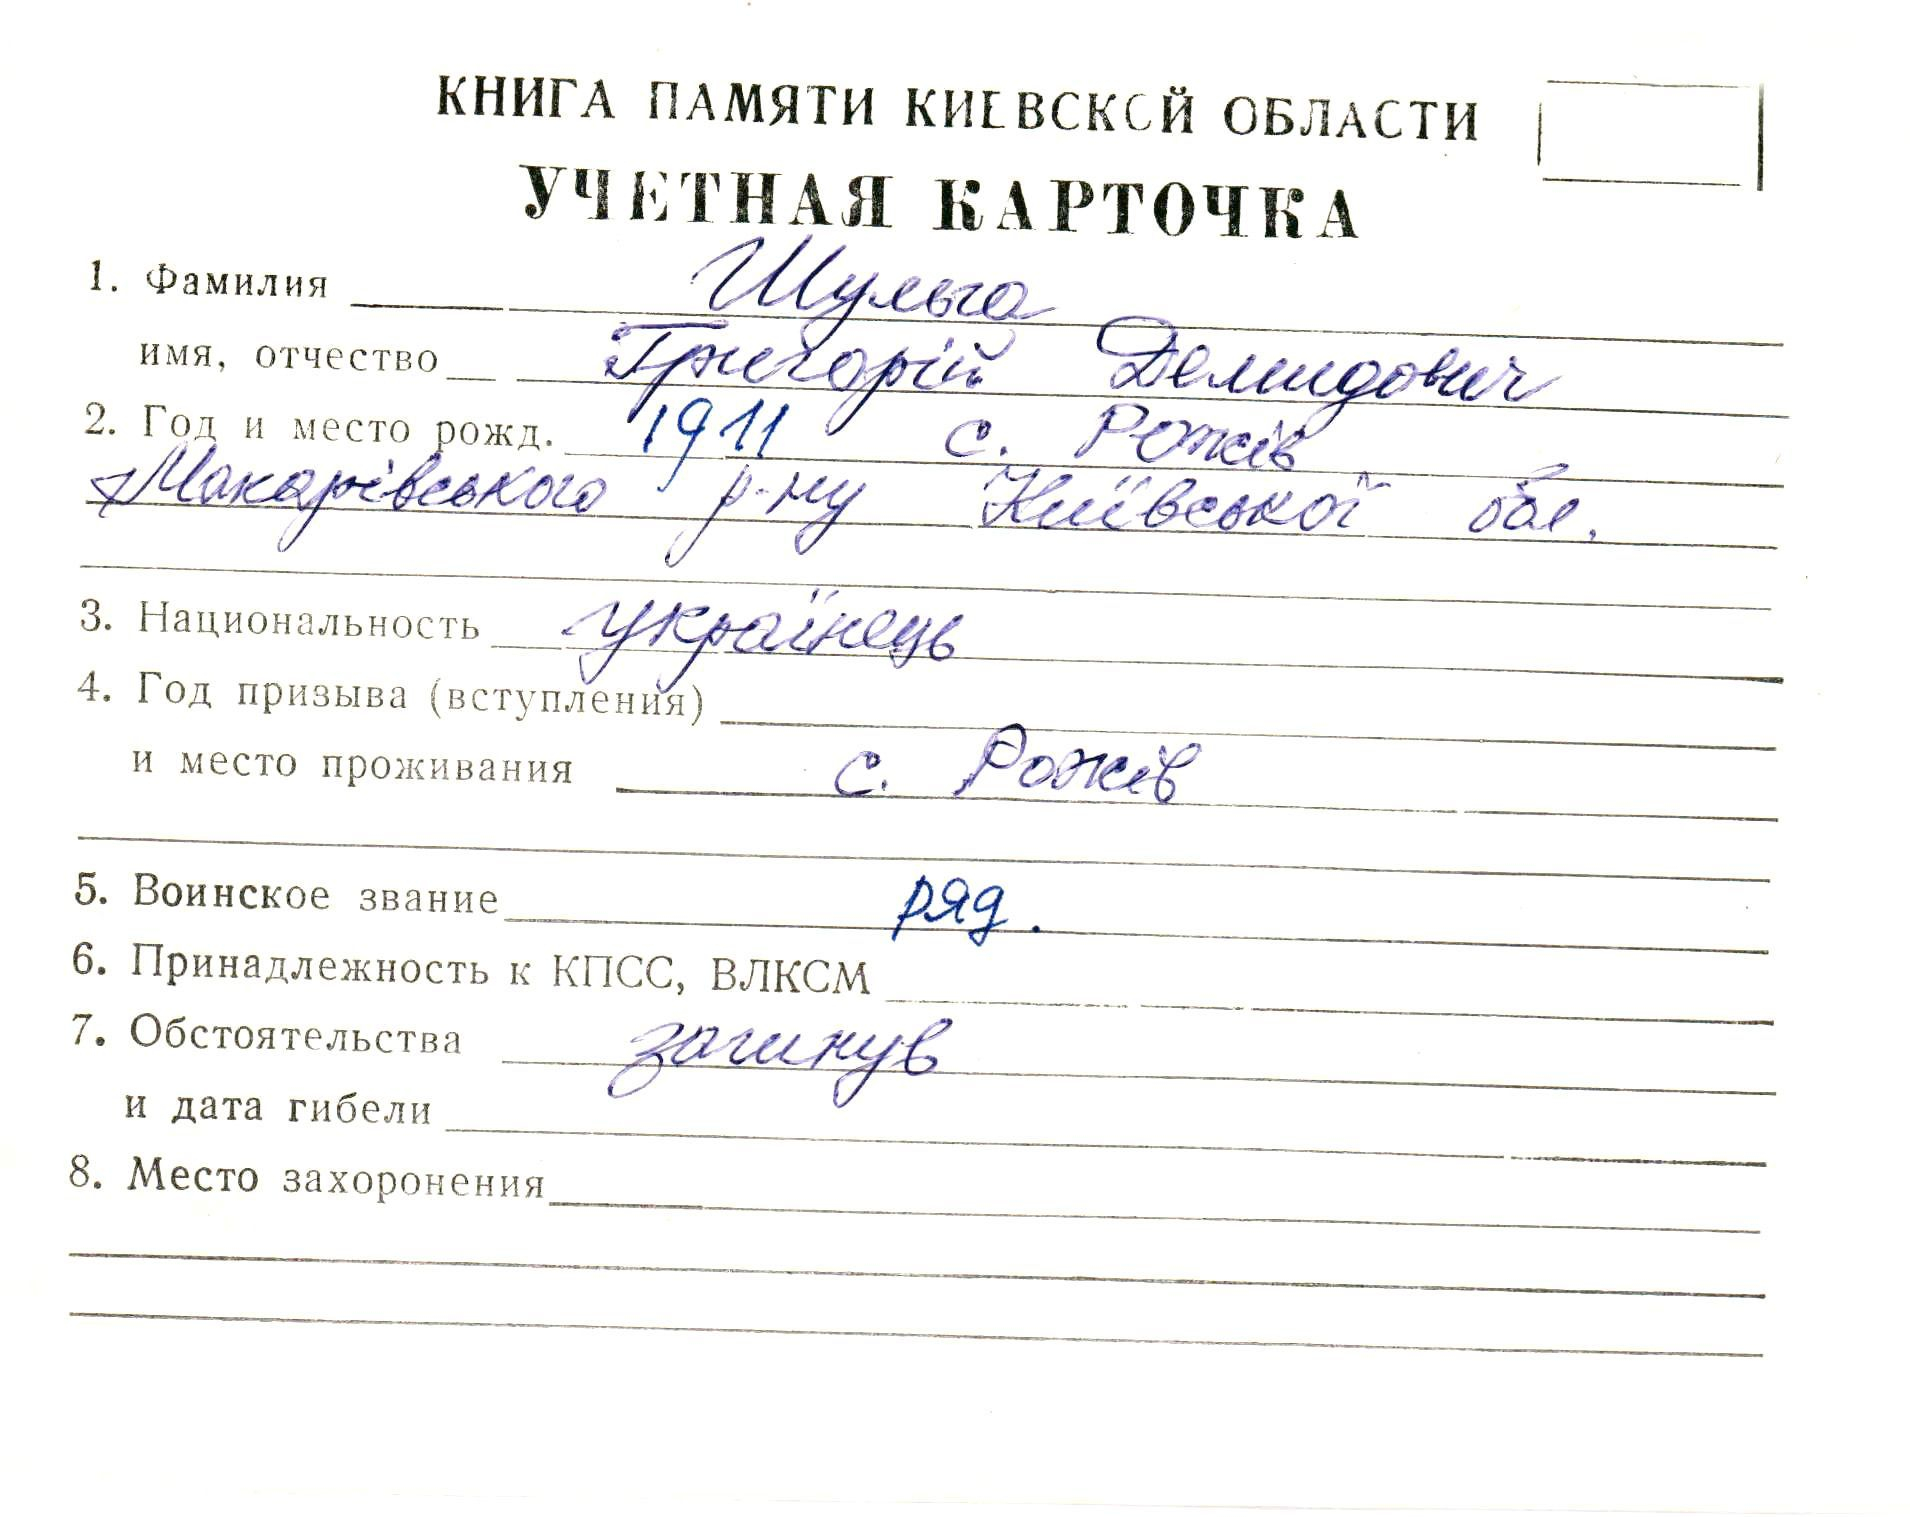 КНИГА ПАМЯТИ КИЕВСКОЙ ОБЛАСТИ
УЧЕТНАЯ КАРТОЧКА
1. Фамилия Шульга
имя, отчество Григорій Демидович
2. Год и место рожд. 1911 с. Рожів
Макарівського р-ну Київської обл.
3. Национальность українець
4. Год призыва (вступления)
и место проживания с. Рожів
5. Воинское звание ряд.
6. Принадлежность к КПСС, ВЛКСМ
7. Обстоятельства загинув
и дата гибели
8. Место захоронения